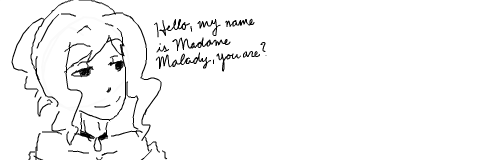 Hello, my name
is Madame
Malady, you are?